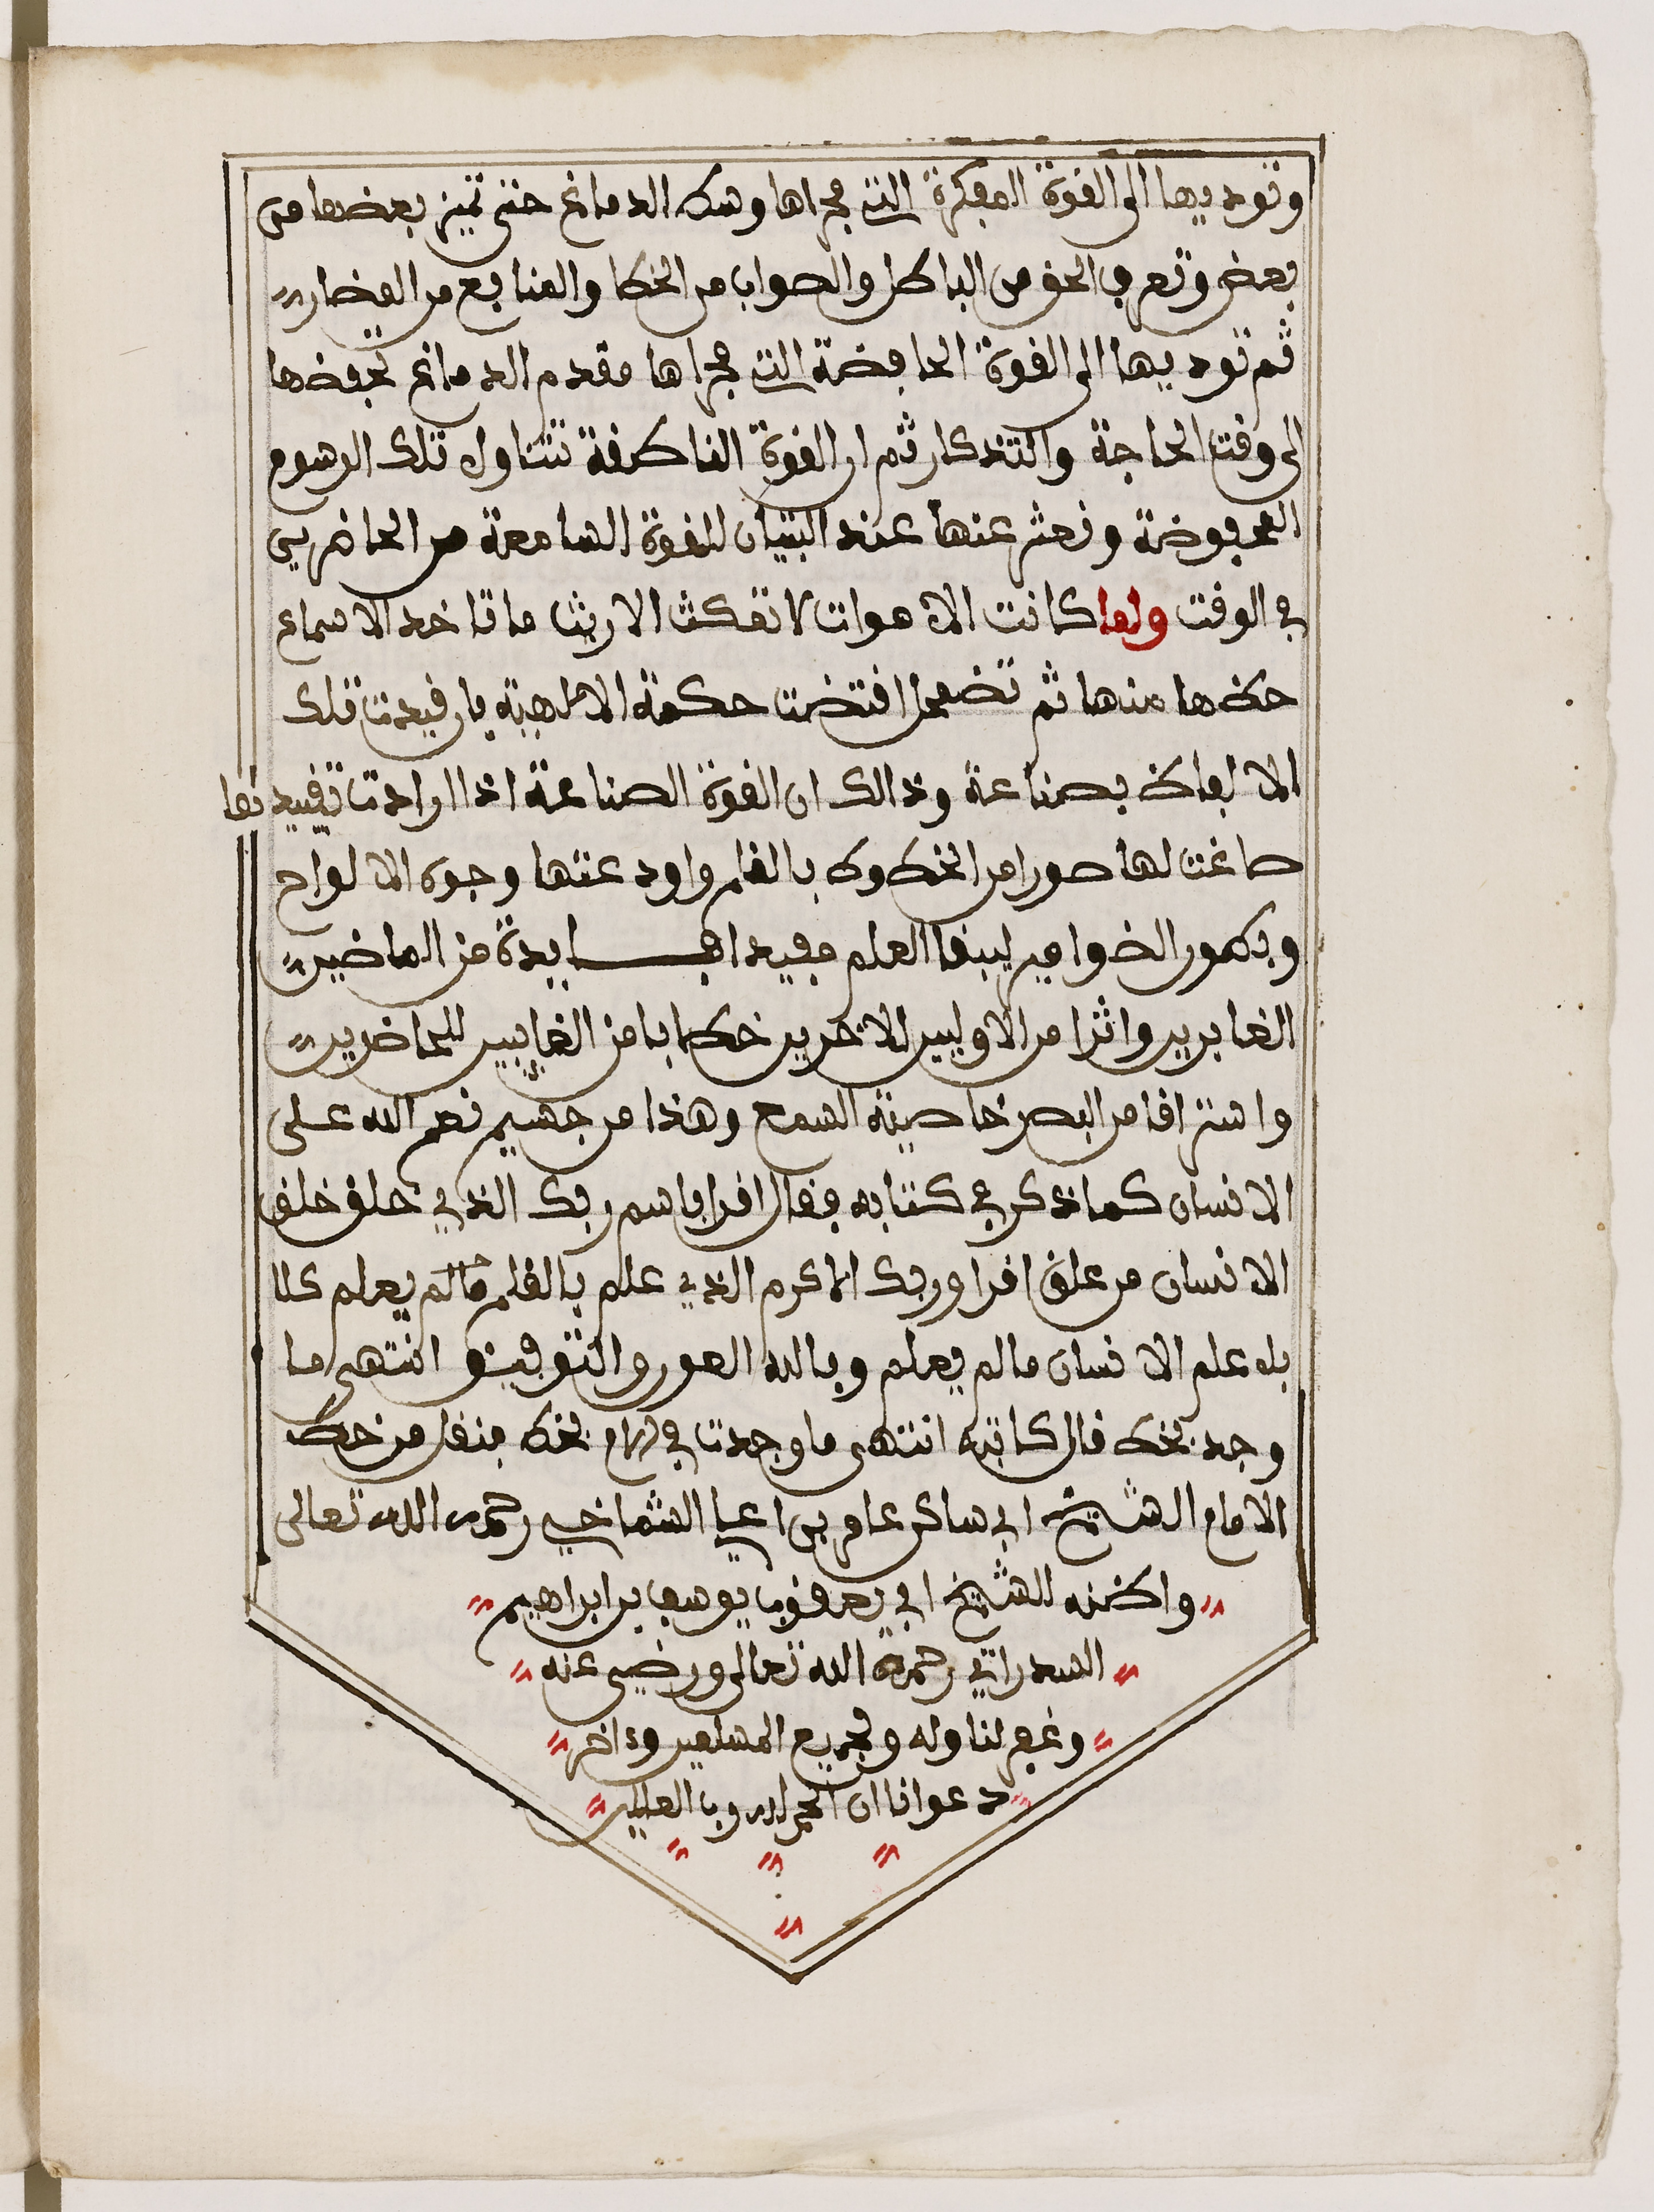 وتوديها الى القوة المفكرة التي مجراها وسط الدماغ حتى تميز بعضها من
بعض وتعرف الحق من الباطل والصواب من الخطا والمنافع من المضار
ثم توديها الى القوة الحافضة التي مجراها مقدم الدماغ تحفضها
الى وقت الحاجة والتذكار ثم ان القوة الناطقة تتناول تلك الرسوم
المحفوضة وتعبر عنها عند البيان للقوة السامعة من الحاضرين
في الوقت ولما كانت الاصوات لا تمكث الا ريثما تاخد الاسماع
حظها منها ثم تضمحل اقتضت حكمة الالاهية بان قيدت تلك
الالفاظ بصناعة وذالك ان القوة الصناعة اذا ارادت تقييدها
صاغت لها صورا من الخطوط بالقلم واودعتها وجوه الالواح
وبطون الضوامير ليبقا العلم مفيدا فايدة من الماضين
الغابرين واثرا من الاولين للاخرين خطابا من الغايبين للحاضرين
واستراقا من البصر خاصية السمع وهذا من جسيم نعم الله على
الانسان كما ذكر في كتابه فقال اقرا باسم ربك الذي خلق خلق
الانسان من علق اقرا وربك الاكرم الذي علم بالقلم ما لم يعلم كلا
بل علم الانسان ما لم يعلم وبالله العون والتوفيق انتهى ما
وجد بخط قال كاتبه انتهى ما وجدت في بخط ينقل من خط
الامام الشيخ ابي ساكن عامر بن اعليا الشماخي رحمه الله تعالى
واظنه للشيخ ابي يعقوب يوسف بن ابراهيم
السدراتي رحمة الله تعالى ورضي عنه
وغفر لنا وله ولجميع المسلمين وءاخر
دعوانا ان الحمد لله رب العلمين